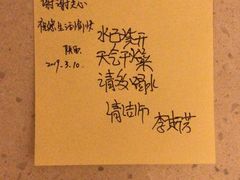 谢谢关心
祝您生活愉快
2019.3.10.
水已烧开
天气干燥
请多喝水
清洁师
李班芳